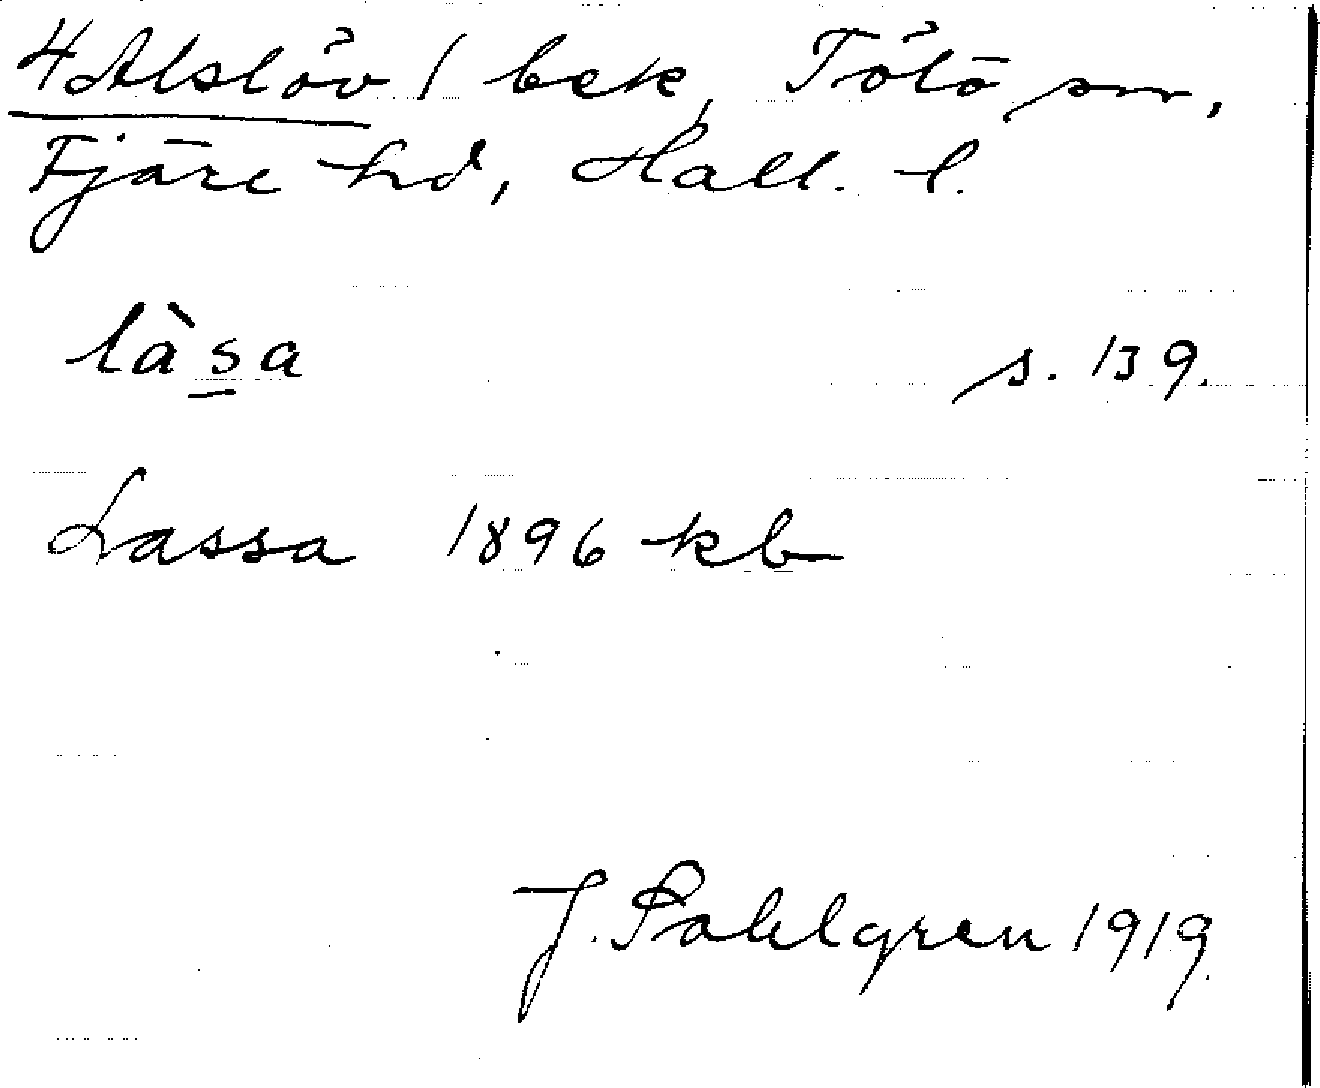 4 Alslöv / bek, Tölö sn,
Fjäre hd, Hall. l.
làsa s. 139.
Lassa 1896 kb
J. Sahlgren 1919.